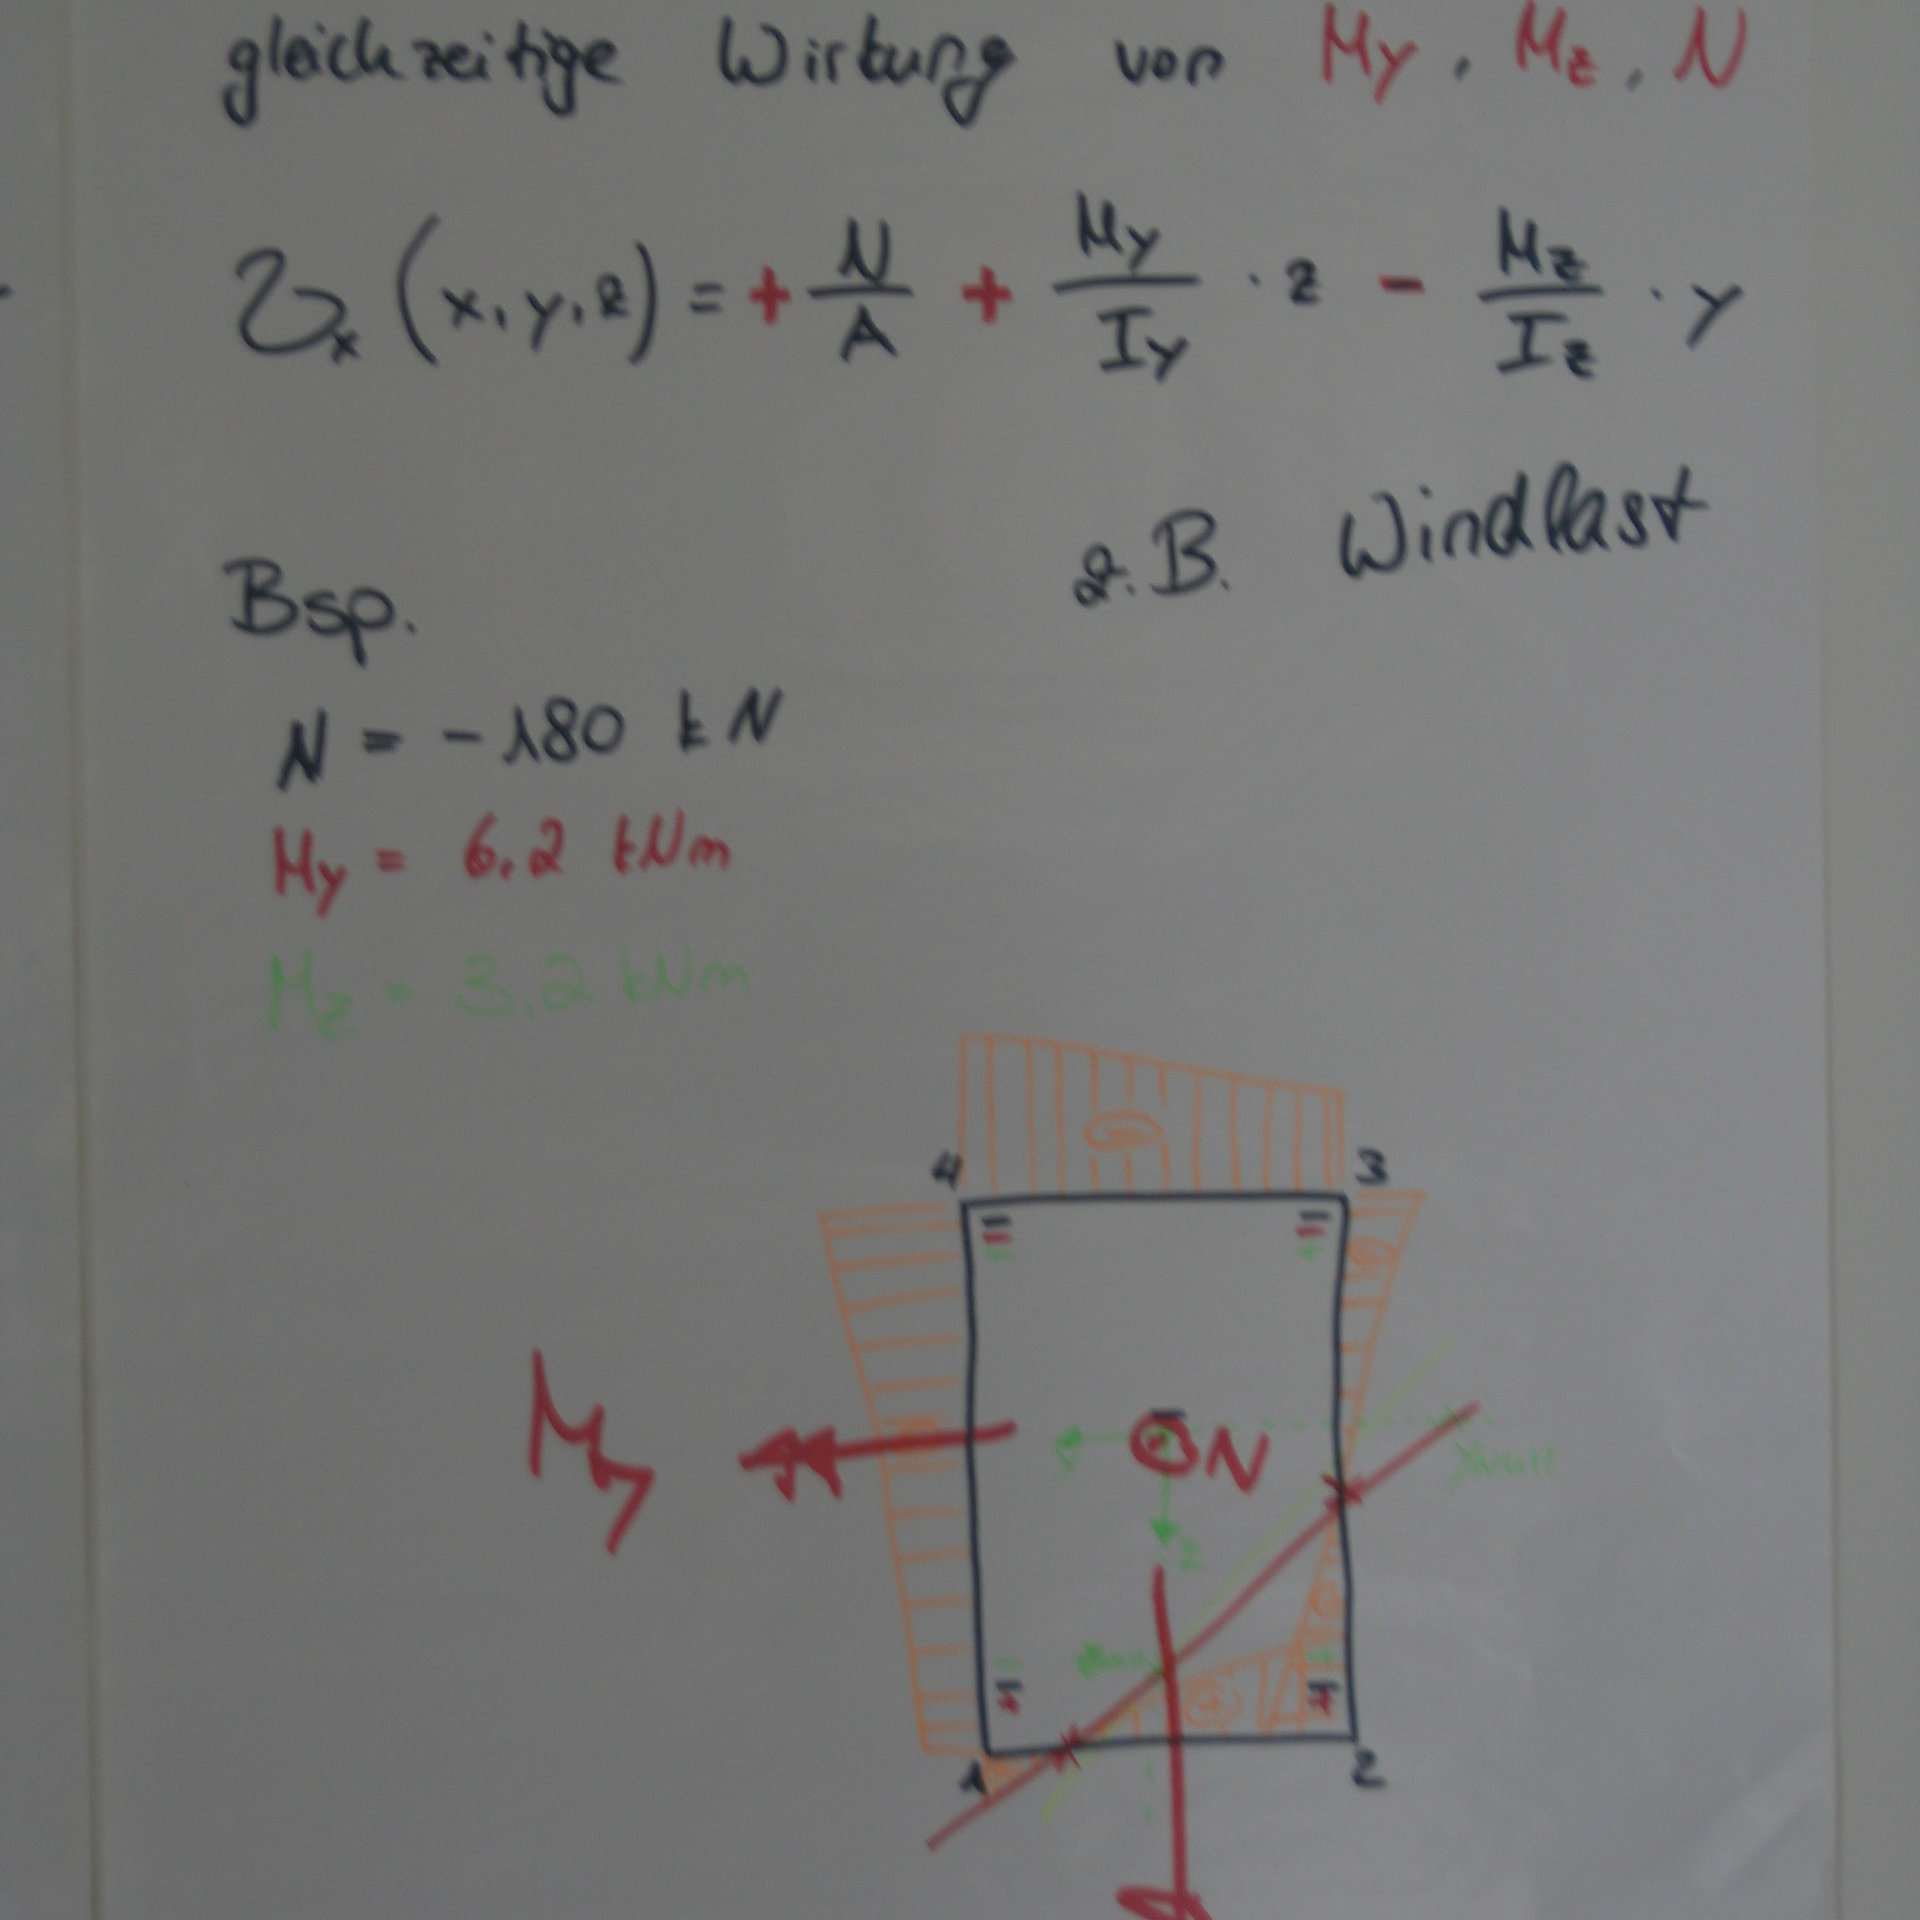 gleichzeitige Wirkung von My, Mz, N
σx (x,y,z) = + N/A + My/Iy · z - Mz/Iz · y
z.B. Windlast
Bsp.
N = -180 kN
My = 6,2 kNm
Mz = 3,2 kNm
4 3
My
N
y
z
1 2